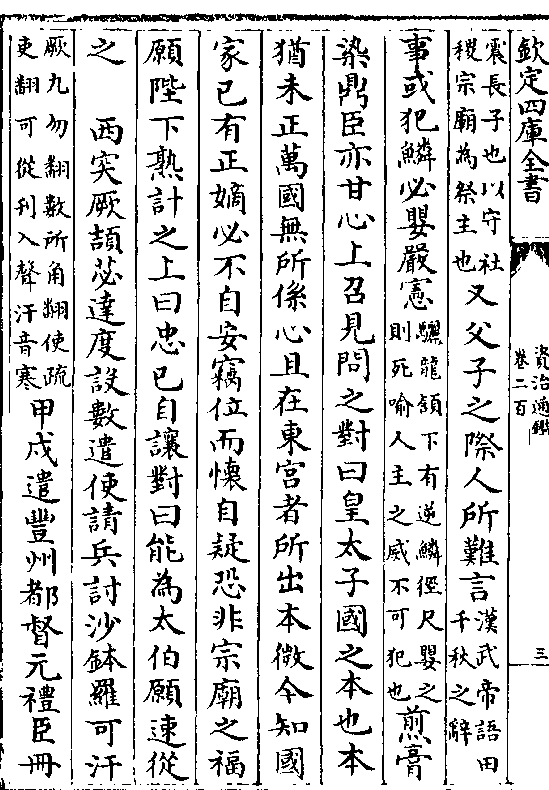 欽定四庫全書
資治通鑑
卷二百
三
震長子也以守社稷宗廟為祭主也又父子之際人所難言漢武帝語田千秋之辭
事或犯鱗必嬰嚴憲驪龍頷下有逆鱗徑尺嬰之則死喻人主之威不可犯也煎膏
染鼎臣亦甘心上召見問之對曰皇太子國之本也本
猶未正萬國無所係心且在東宮者所出本微今知國
家已有正嫡必不自安竊位而懷自疑恐非宗廟之福
願陛下熟計之上曰忠已自讓對曰能為太伯願速從
之　西突厥頡苾達度設數遣使請兵討沙鉢羅可汗
厥九勿翻數所角翻使疏吏翻可從刋入聲汗音寒甲戌遣豐州都督元禮臣冊